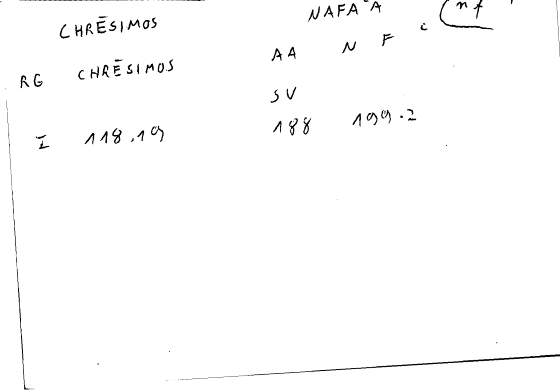 CHRĒSIMOS NAFAʿA nf
RG CHRĒSIMOS AA N F ʿ
SV
I 118.19 188 199.2